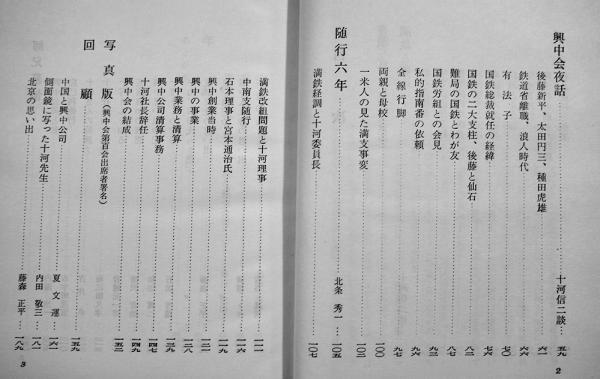 興中会夜話 十河信二談 五九
後藤新平、太田円三、種田虎雄 六一
鉄道省離職、浪人時代 六六
有法子 七〇
国鉄総裁就任の経緯 七六
国鉄の二大支柱、後藤と仙石 七八
難局の国鉄とわが友 八二
国鉄労組との会見 九三
私的指南番の依頼 九六
全線行脚 九七
両親と母校 一〇〇
一米人の見た満支事変 一〇三
随行六年 北条 秀一 一〇五
満鉄経調と十河委員長 一〇七
2
満鉄改組問題と十河理事 一一一
中南支随行 一一六
石本理事と宮本通治氏 一一九
興中創業当時
興中の事業
興中業務と清算 一三九
興中公司清算事務 一四七
十河社長辞任 一四九
興中会の結成 一五二
写真版(興中会第百会出席者署名)
回顧 一五九
中国と興中公司 夏 文運 一六一
側面鏡に写った十河先生 内田 敬三 一八一
北京の思い出 藤森 正平 一八九
3